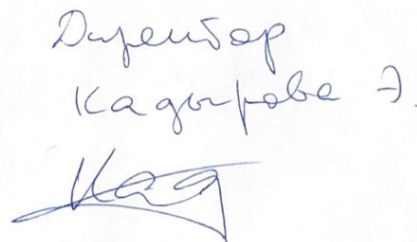 Директор
Кадырова Э.